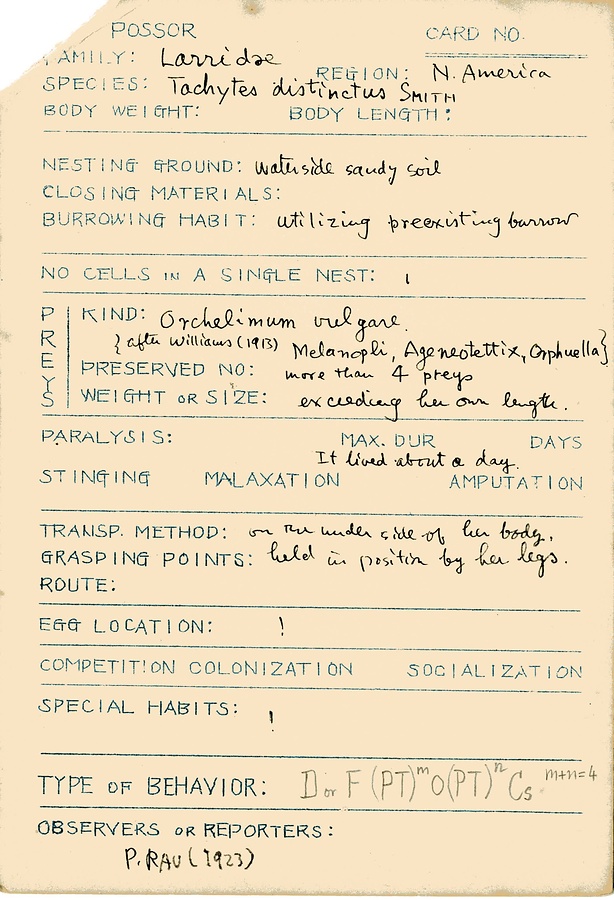 POSSOR CARD NO.
FAMILY: Larridae
REGION: N. America
SPECIES: Tachytes distinctus SMITH
BODY WEIGHT: BODY LENGTH:
NESTING GROUND: waterside sandy soil
CLOSING MATERIALS:
BURROWING HABIT: utilizing preexisting burrow
NO CELLS IN A SINGLE NEST: 1
PREYS
KIND: Orchelimum vulgare.
{after Williams (1913) Melanopli, Ageneotettix, Orphuella}
PRESERVED NO: more than 4 preys
WEIGHT OR SIZE: exceeding her own length.
PARALYSIS: MAX. DUR DAYS
It lived about a day.
STINGING MALAXATION AMPUTATION
TRANSP. METHOD: on the under side of her body,
GRASPING POINTS: held in position by her legs.
ROUTE:
EGG LOCATION: !
COMPETITION COLONIZATION SOCIALIZATION
SPECIAL HABITS: !
TYPE OF BEHAVIOR: D or F (PT)ᵐO(PT)ⁿ Cs m+n=4
OBSERVERS OR REPORTERS:
P. RAU (1923)